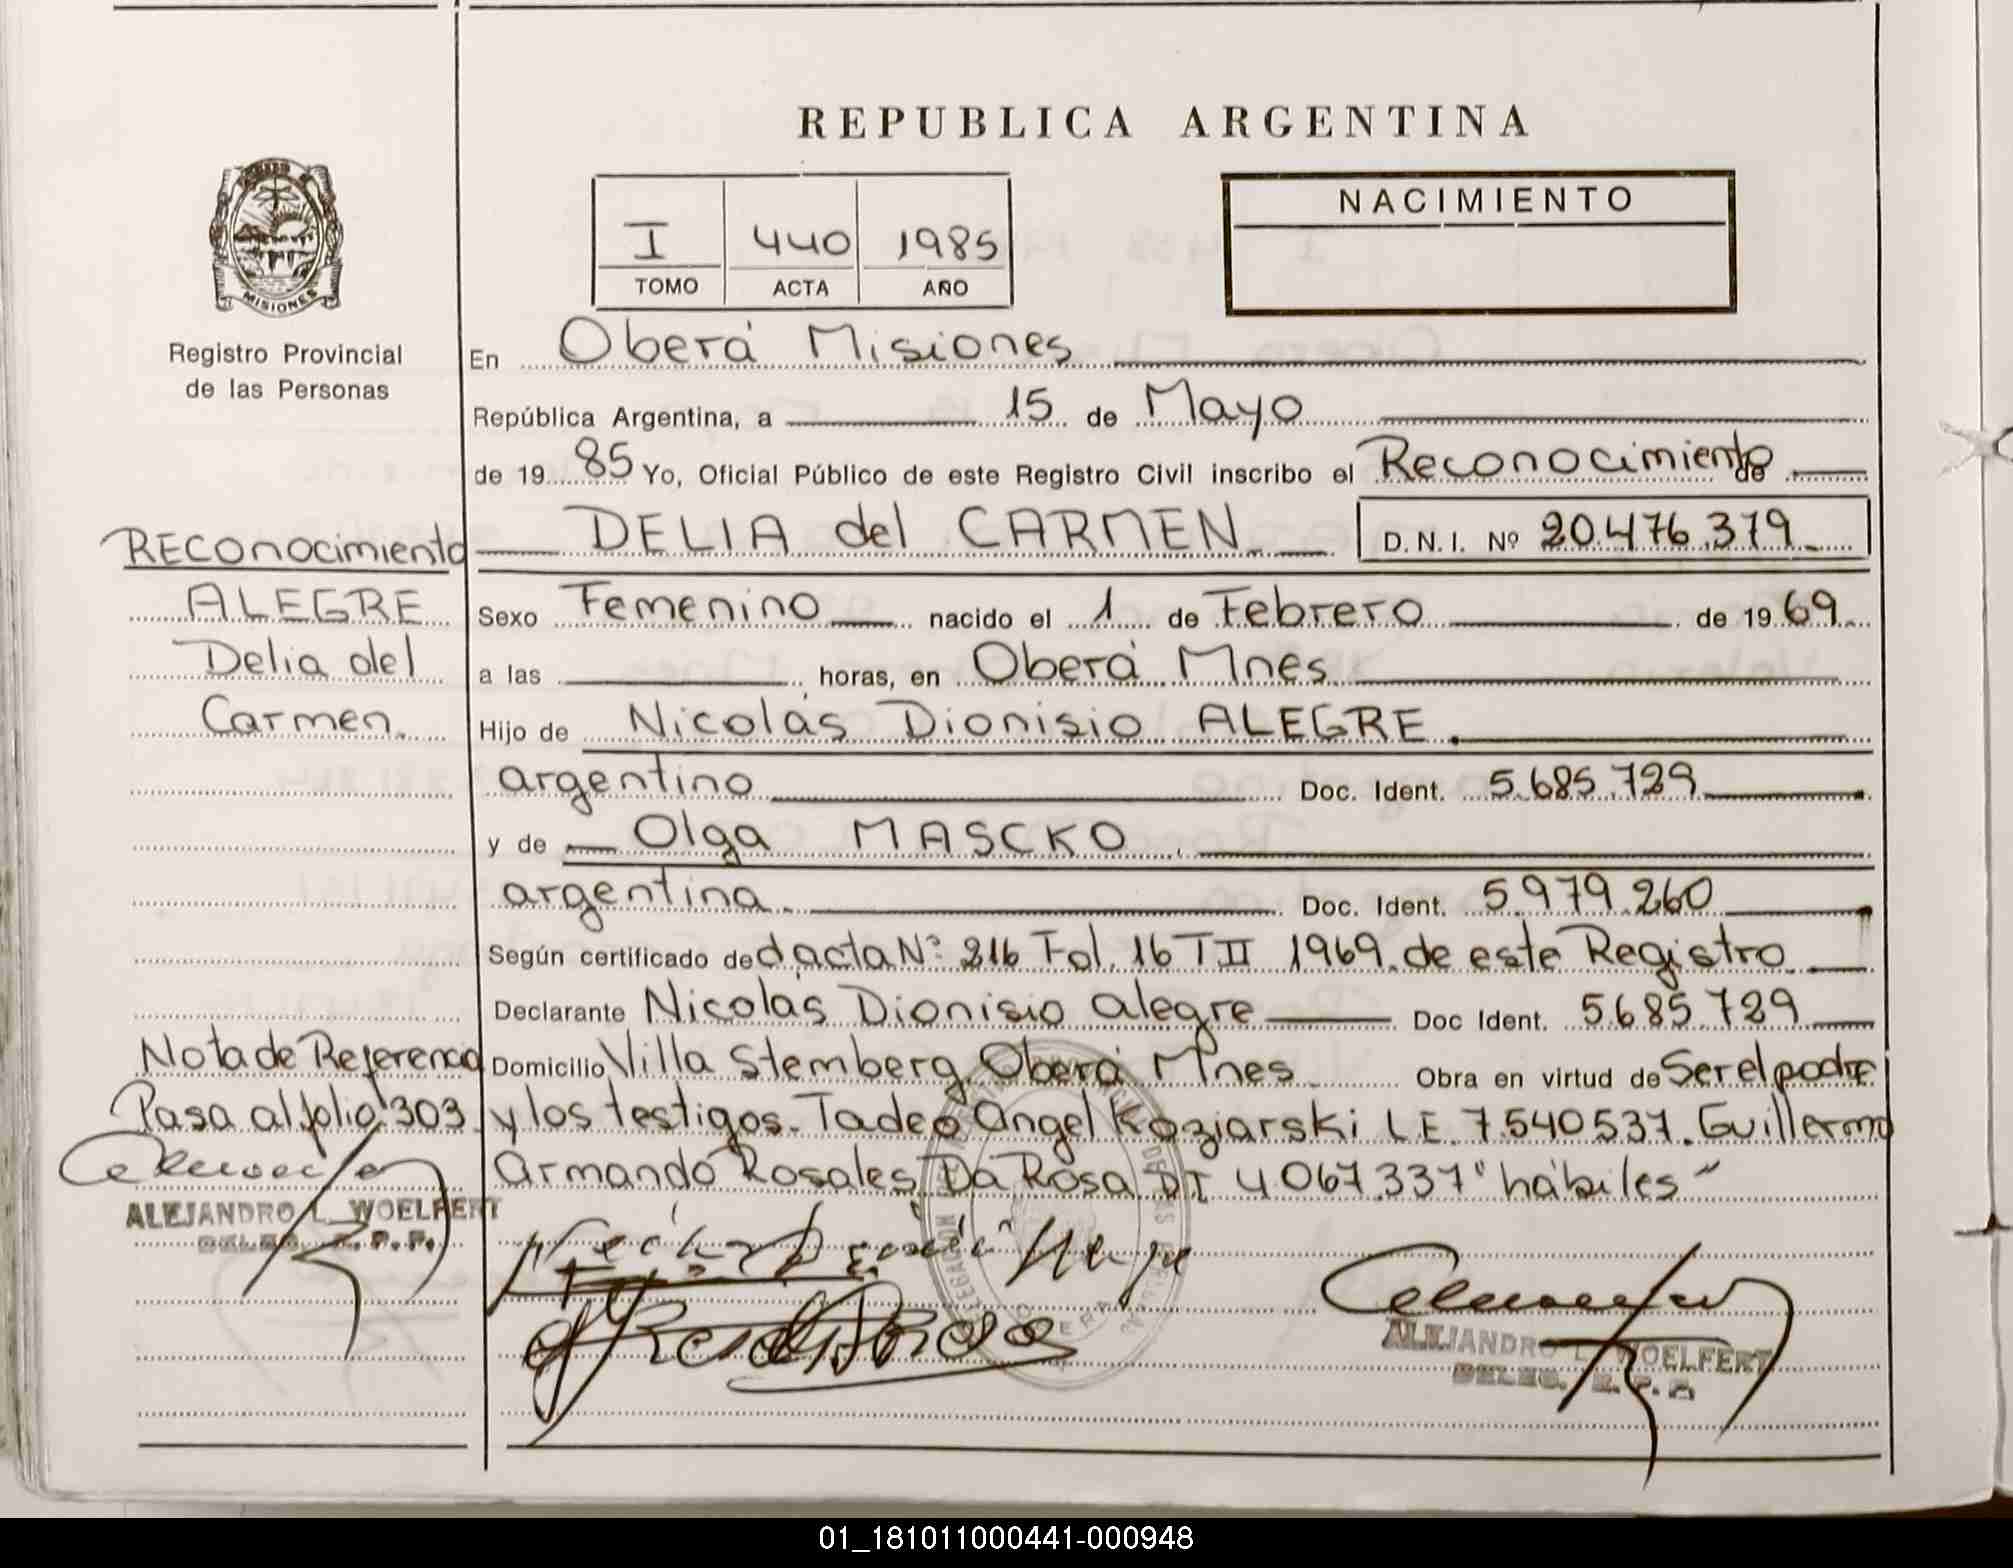 REPUBLICA ARGENTINA
MISIONES
Registro Provincial
de las Personas
I 440 1985
TOMO ACTA AÑO
NACIMIENTO
En Oberá Misiones
República Argentina, a 15 de Mayo
de 1985 Yo, Oficial Público de este Registro Civil inscribo el Reconocimiento de
DELIA del CARMEN. D.N.I. Nº 20.476.379
Sexo Femenino nacido el 1 de Febrero de 1969.
a las horas, en Oberá Mnes
Hijo de Nicolás Dionisio ALEGRE.
argentino Doc. Ident. 5.685.729
y de Olga MASCKO.
argentina. Doc. Ident. 5.979.260
Según certificado de d'acta Nº: 216 Fol. 16 T II 1969. de este Registro.
Declarante Nicolás Dionisio alegre Doc Ident. 5.685.729
Domicilio Villa Stemberg. Oberá Mnes Obra en virtud de Ser el padre
y los testigos. Tadeo Angel Koziarski L E. 7.540537. Guillermo
Armando Rosales Da Rosa D I 4067.337 "hábiles"
RECONOCIMIENTO
ALEGRE
Delia del
Carmen.
Nota de Referencia
Pasa al folio 303.
ALEJANDRO L. WOELFERT
DELEG. R. P. P.
OBERA
ALEJANDRO L. WOELFERT
DELEG. R. P. P.
01_181011000441-000948